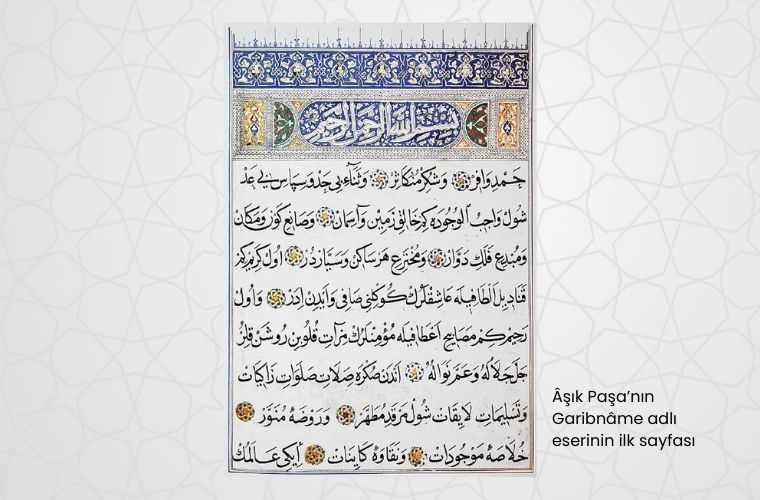 بسم الله الرحمن الرحيم
حمد وافر وشكر متكاثر وثناء بى حد وسپاس بى عد
شول واجب الوجوده كم خالق زمين وآسمان وصانع كون ومكان
ومبدع فلك دوار ومخترع هر ساكن وسيار در اول كريم كم
قناديل الطافيله عاشقلرك كوكلنى صافى وآيدن ادر واول
رحيم كم مصابيح اعطافيله مؤمنلرك مرآت قلوبن روشن قلر
جل جلاله وعم نواله اندن صكره صلات صلوات زاكيات
وتسليمات لايقات شول مرقد مطهر وروضۀ منور
خلاصۀ موجودات ونقاوۀ كاينات ايكى عالمك
Âşık Paşa’nın
Garibnâme adlı
eserinin ilk sayfası